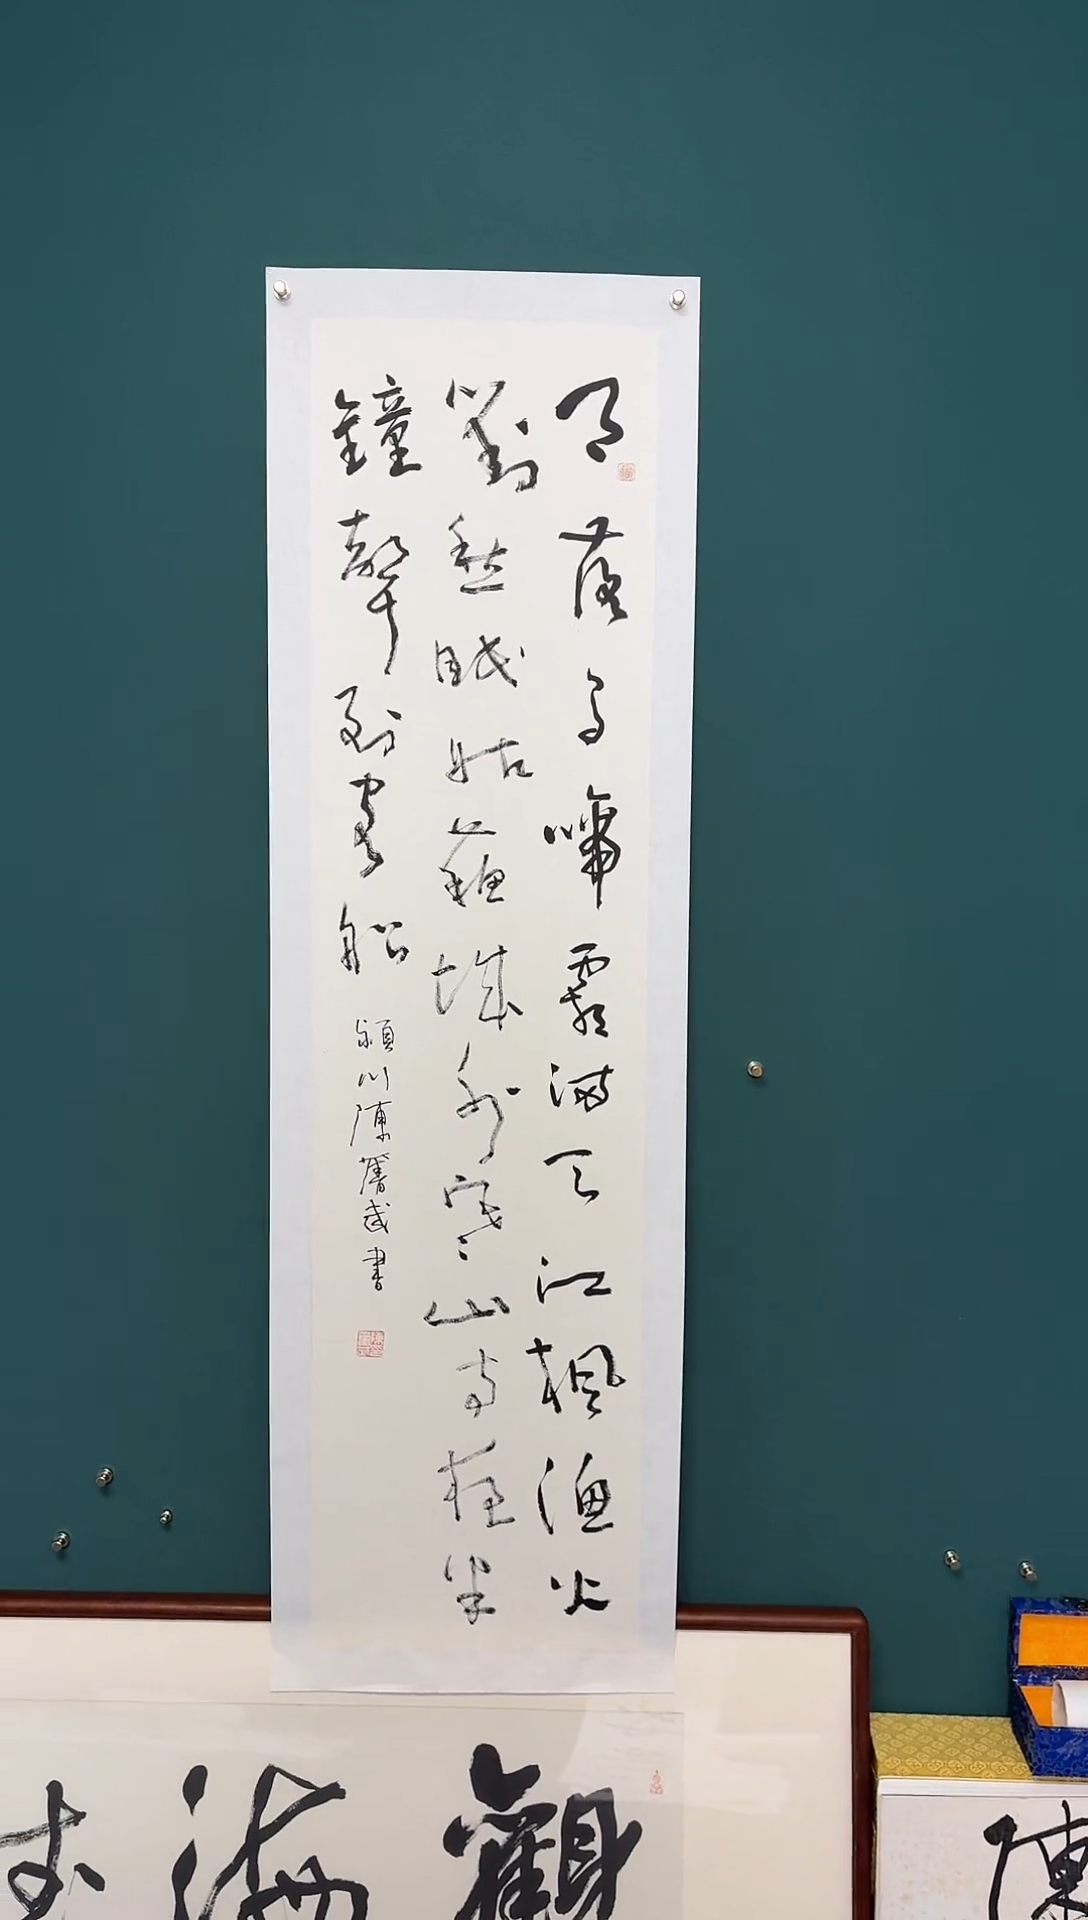 月落烏啼霜滿天江楓漁火
對愁眠姑蘇城外寒山寺夜半
鐘聲到客船
潁川陳舊武書
觀海
陳